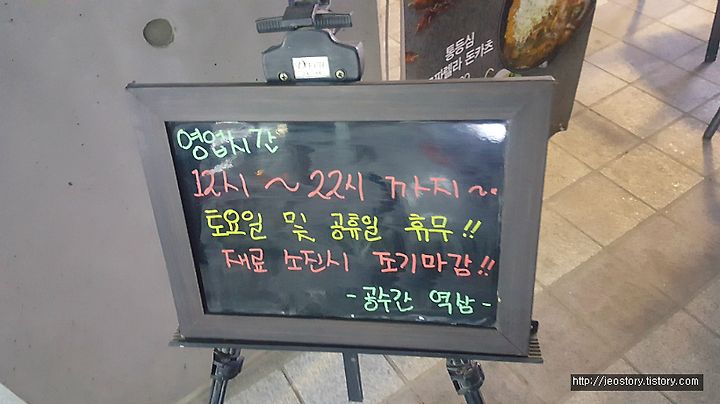 통등심
모짜렐라 돈카츠
영업시간
12시 ~ 22시 까지~..
토요일 및 공휴일 휴무!!
재료 소진시 조기마감!!
- 공수간 역삼 -
http://jeostory.tistory.com